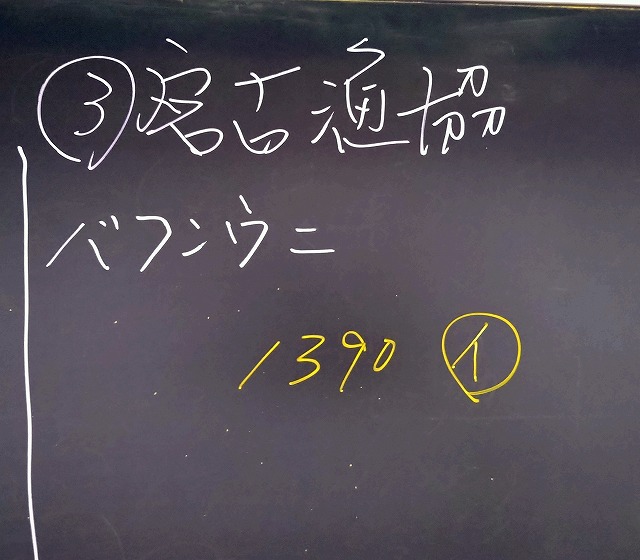 ③宮古漁協
バフンウニ
1390 ㋑